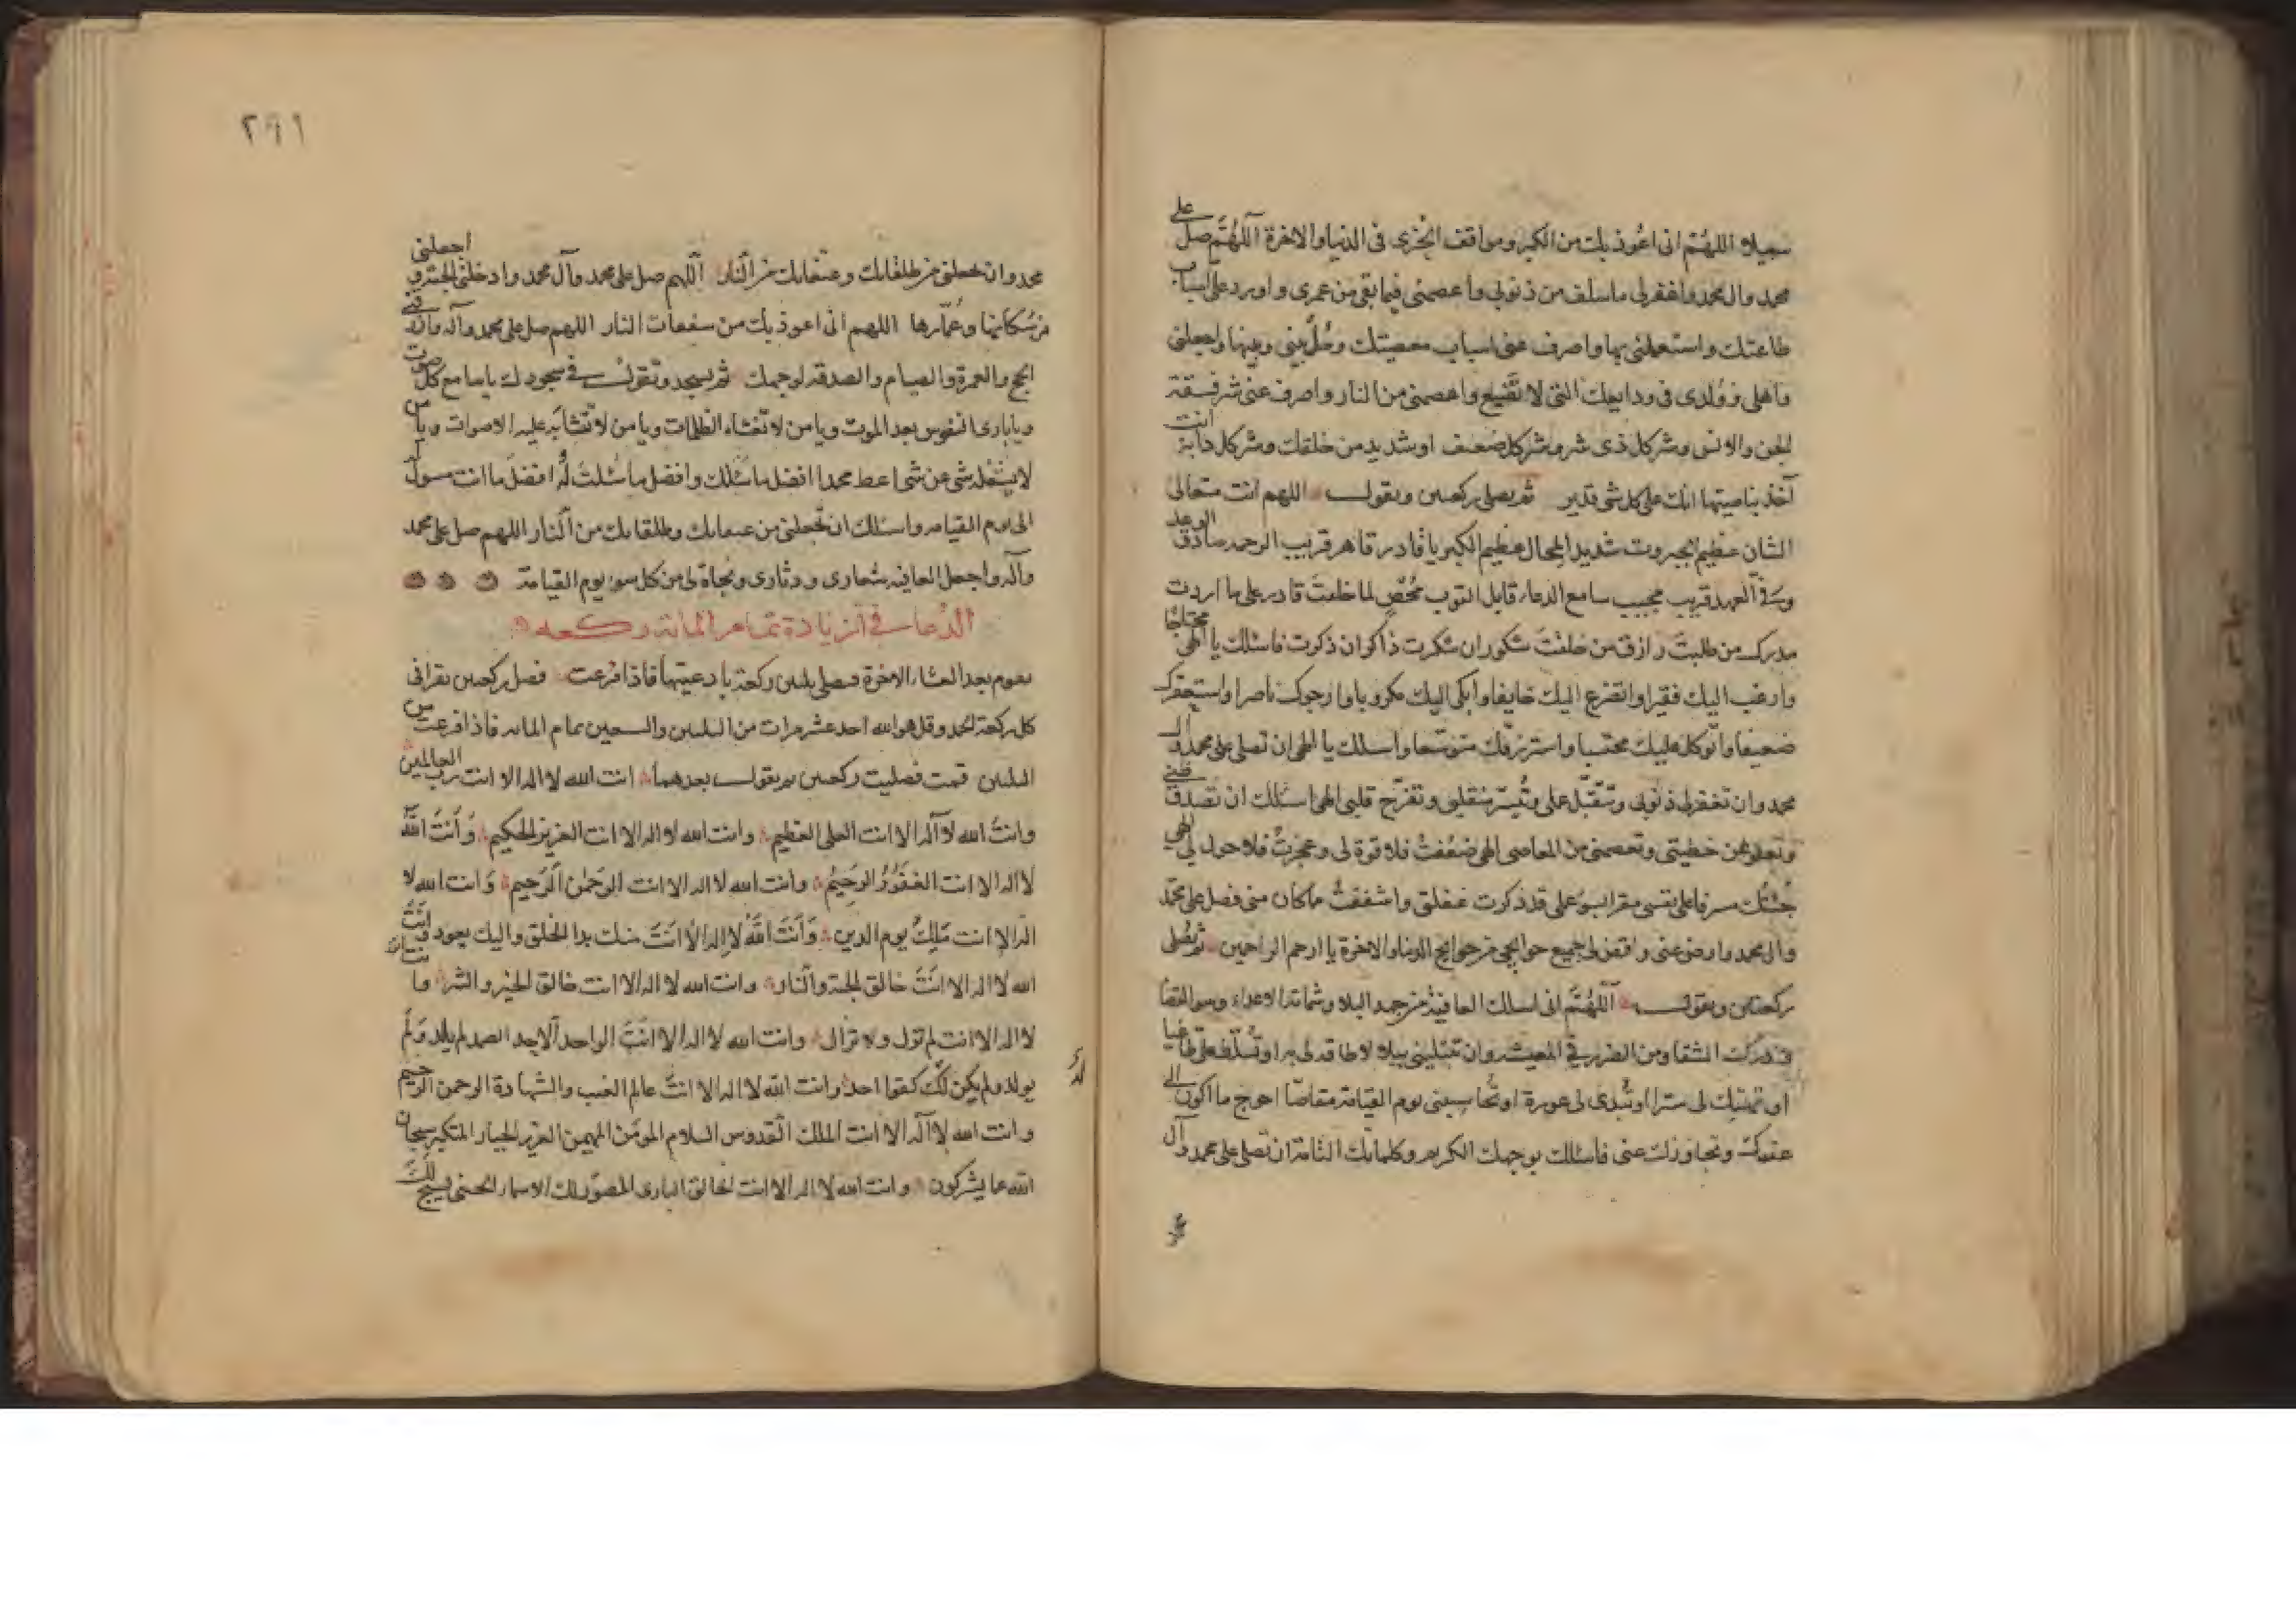 سبيلا اللهم انى اعوذ بك من الكبر ومواقف الخزى فى الدنيا والاخرة اللهم صل على
محمد وال محمد واغفر لى ما سلف من ذنوبى واعصمنى فيما بقى من عمرى واورد على اسباب
طاعتك واستعملنى بها واصرف عنى اسباب معصيتك وحُل بينى وبينها واجعلنى
واهلى وولدى فى ودايعك التى لا تضيع واعصمنى من النار واصرف عنى شر فسقة
الجن والانس وشر كل ذى شر وشر كل ضعيف او شديد من خلقك وشر كل دابة انت
آخذ بناصيتها انك على كل شى قدير ثم يصلى ركعتين ويقول اللهم انت متعالى
الشان عظيم الجبروت شديد المحال عظيم الكبريا قادر قاهر قريب الرحمه صادق الوعد
وفى العهد قريب مجيب سامع الدعاء قابل التوب مُحصٍ لما خلقت قادر على ما اردت
مدرك من طلبتَ رازق من خلقتَ شكور ان شكرت ذاكر ان ذكرت فاسئلك يا الهى محتاجًا
وارغب اليك فقيرا واتضرع اليك خايفا وابكى اليك مكروبا وارجوك ناصرا واستغفرك
ضعيفا واتوكل عليك محتسبا واسترزقك متوسعا واسئلك يا الهى ان تصلى على محمد وال
محمد وان تغفر لى ذنوبى وتتقبل على وتيسر منقلبى وتفرج قلبى الهى اسئلك ان تصدق ظنى
وتعفو عن خطيئتى وتعصمنى من المعاصى الهى ضعُفتُ فلا قوة لى وعجزتُ فلا حول لى الهى
جئتك مسرفا على نفسى مقرا بسوء على قد ذكرت غفلتى واشفقتُ مما كان منى فصل على محمد
وال محمد وارض عنى واقض لى جميع حوايجى من حوايج الدنيا والاخرة يا ارحم الراحمين ثم يصلى
ركعتين ويقول اللهم انى اسئلك العافية من جهد البلاء وشماتة الاعداء وسوء القضاء
ودرك الشقاء ومن الضرر فى المعيشه وان تبتلينى ببلاء لا طاقة لى به او تسلط على طاغيا
او تهتك لى سترا او تبدى لى عورة او تحاسبنى يوم القيامة مقاصّا احوج ما اكون الى
عفوك وتجاوزك عنى فاسئلك بوجهك الكريم وكلماتك التامة ان تصلى على محمد وآل
٢٩١
محمد وان تجعلنى من طلقائك وعتقائك من النار اللهم صل على محمد وآل محمد وادخلنى الجنة و اجعلنى
من سكانها وعُمّارها اللهم انى اعوذ بك من سفعات النار اللهم صل على محمد وآله وارزقنى
الحج والعمرة والصيام والصدقه لوجهك ثم يسجد وتقول فى سجودك يا سامع كل صوت
ويا بارى النفوس بعد الموت ويا من لا تغشاه الظلمات ويا من لا تتشابه عليه الاصوات ويا من
لا يشغله شى عن شى اعط محمدا افضل ما سئلك وافضل ما سُئلتَ له وافضل ما انت مسول
الى يوم القيامه واسئلك ان تجعلنى من عتقائك وطلقائك من النار اللهم صل على محمد
وآله واجعل العافيه شعارى ودثارى ونجاة لى من كل سوء يوم القيامة
الدعاء فى الزيادة تمام المائة ركعه
يقوم بعد العشاء الاخرة فيصلى ثلثين ركعة بادعيتها فاذا فرغت فصل ركعتين تقرا فى
كل ركعة الحمد وقل هو الله احد عشر مرات من الثلثين والسبعين تمام المائه فاذا فرغت من
الثلثين قمت فصليت ركعتين ثم يقول بعدهما انت الله لا اله الا انت رب العالمين
وانتَ الله لا اله الا انت العلى العظيم وانت الله لا اله الا انت العزيز الحكيم وَانتَ الله
لا اله الا انت الغفورُ الرحيمُ وانت الله لا اله الا انت الرحمن الرحيم وَانت الله لا
اله الا انت مَلِكُ يوم الدين وَانتَ الله لا اله الا انتَ منك بدا الخلق واليك يعود وانتَ
الله لا اله الا انتَ خالق الجنة والنار وانت الله لا اله الا انت خالق الخير والشر
لا اله الا انت لم تزل ولا تزال وانت الله لا اله الا انتَ الواحد الاحد الصمد لم يلد وَلَم
يولد ولم يكن لك كفوا احد وانت الله لا اله الا انتَ عالم الغيب والشهادة الرحمن الرحيم
وانت الله لا اله الا انت الملك القدوس السلام المومن المهيمن العزيز الجبار المتكبر سبحان
الله عما يشركون وانت الله لا اله الا انت الخالق البارى المصوّر لك الاسماء الحسنى يسبح لك